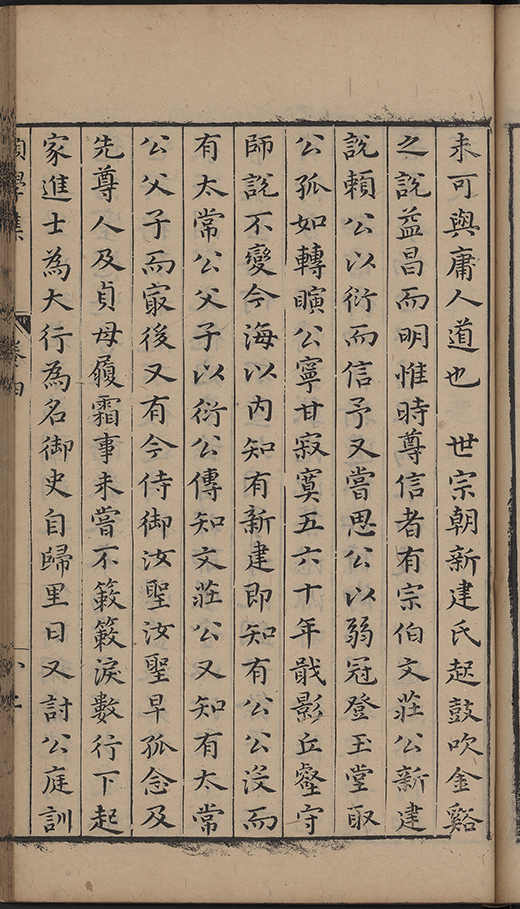 未可與庸人道也　世宗朝新建氏起鼓吹金谿
之說益昌而明惟時尊信者有宗伯文莊公新建
說賴公以衍而信予又嘗思公以弱冠登玉堂取
公孤如轉曠公寧甘寂寞五六十年戢影丘壑守
師說不變今海以內知有新建即知有公公沒而
有太常公父子以衍公傳知文莊公又知有太常
公父子而㝡後又有今侍御汝聖汝聖早孤念及
先尊人及貞母履霜事未嘗不簌簌淚數行下起
家進士為大行為名御史自歸里日又討公庭訓
學集
卷四